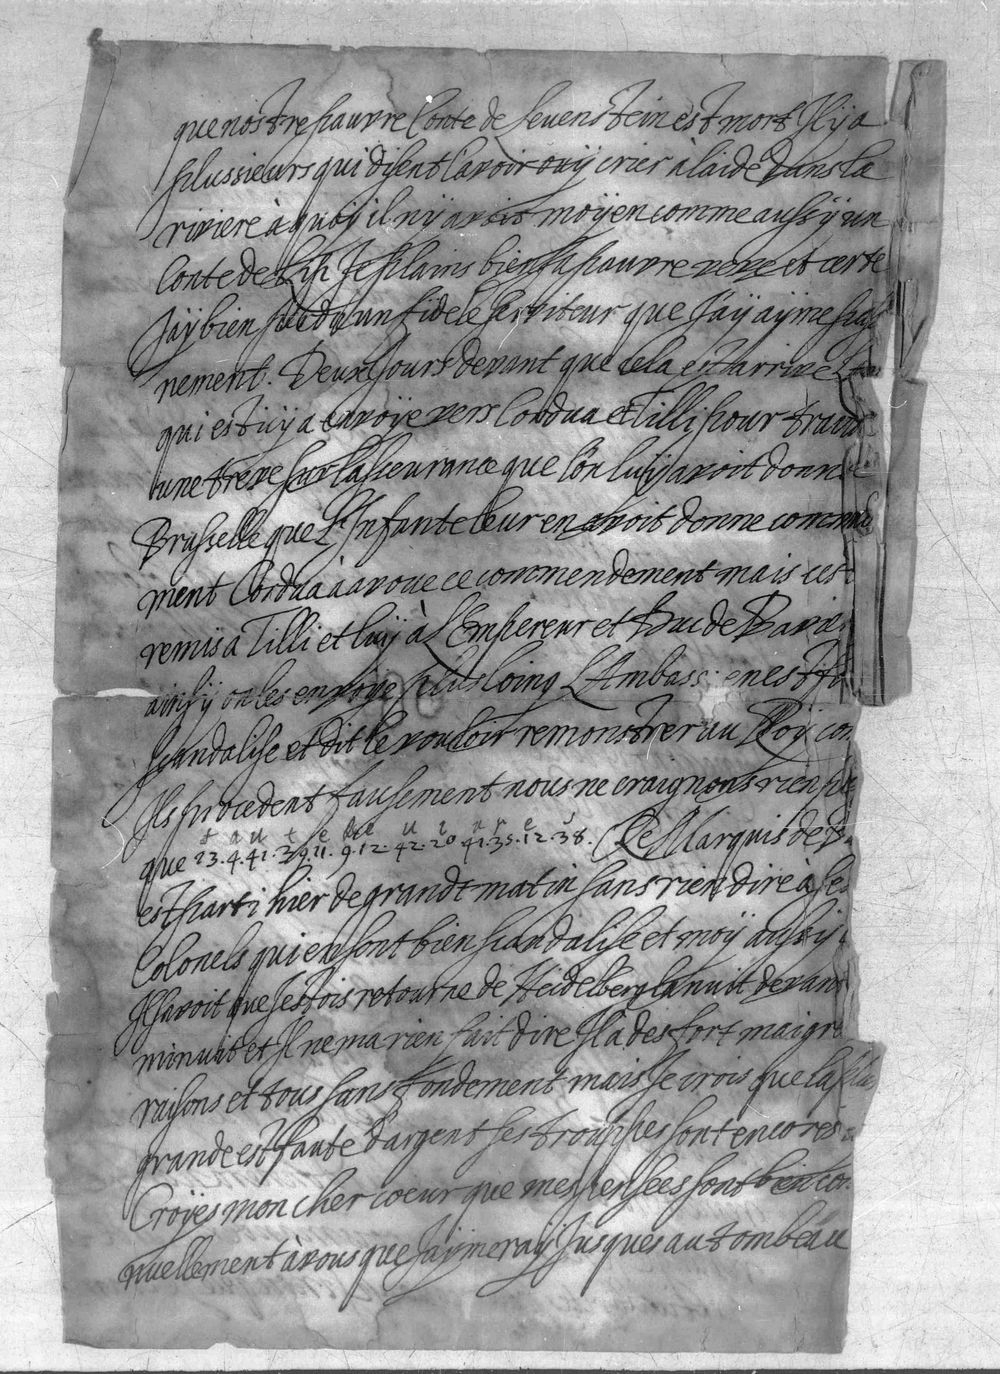 que nostre pauvre Conte de Leuenstein est mort Il y a
plussieurs qui disent l'avoir ouÿ crier à l'aide dans la
riviere à quoÿ il nÿ avoit moÿen comme aussÿ un
Conte de Je plains bien sa pauvre et certe
Jaÿ bien perdu un fidele serviteur que J'aÿ aÿme
nement. Deux Jours devant que cela est arrive
qui est icÿ a envoÿe vers Cordua et Tilli pour
une treve sur l'asseurance que l'on luÿ avoit donne
Brusselle que L'Infante leur en avoit donne comm
ment Cordua a avoue ce commendement mais cest
remis a Tilli et luÿ à L'Empereur et Duc de Bavi
ainsÿ on les envoye plus loing L'Ambass: en est
scandalise et dit le vouloir remonstrer au Roÿ co
Ils procedent fausement nous ne craignons rien
que 23. 4. 42. 39. 11. 9. 12. 42. 20 41. 35. 12. 38. Le Marquis de
est parti hier de grandt matin sans rien dire à ses
Colonels qui en sont bien scandalise et moÿ aussÿ
Il savoit que Jestois retourne de Heidelberg la nuit devant
minuit et Il ne ma rien fait dire Il a des fort maigre
raisons et tous sans fondement mais Je crois que la
grande est faute d'argent ses trouppes sont encores
Croÿes mon cher coeur que mes pensees sont bien
nuellement à vous que J'aÿmeraÿ Jusques au tombeau